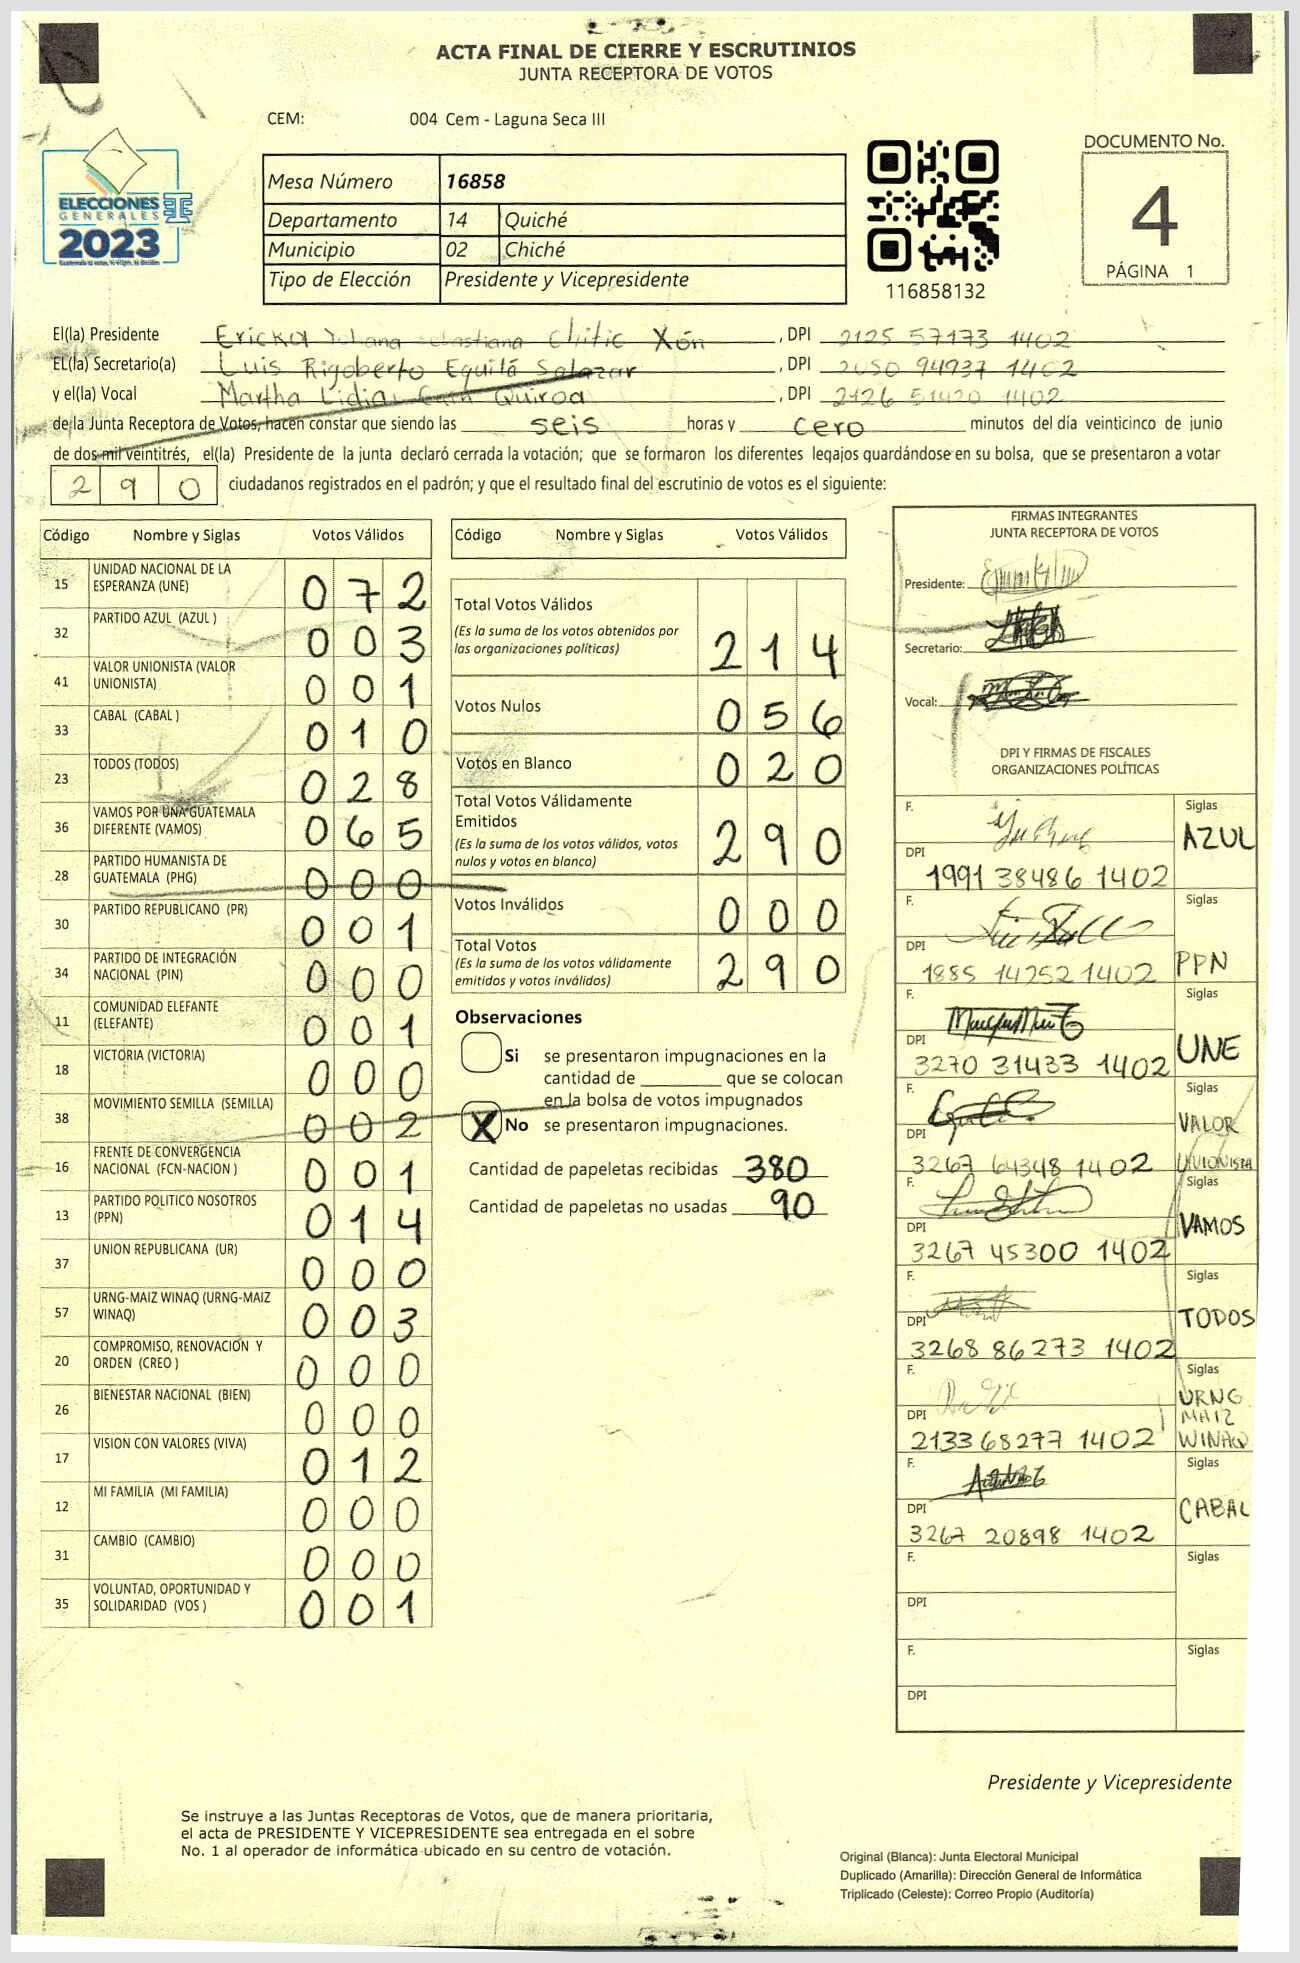 ACTA FINAL DE CIERRE Y ESCRUTINIOS
JUNTA RECEPTORA DE VOTOS
CEM: 004 Cem - Laguna Seca III
ELECCIONES
GENERALES
2023
Mesa Número 16858
Departamento 14 Quiché
Municipio 02 Chiché
Tipo de Elección Presidente y Vicepresidente
116858132
DOCUMENTO No.
4
PÁGINA 1
El(la) Presidente Ericka Chitic Xón , DPI 2125 57173 1402
EL(la) Secretario(a) Luis Rigoberto Equilá Salazar , DPI 2050 94937 1402
y el(la) Vocal Martha Lidia Quiroa , DPI 2126 51420 1402
de la Junta Receptora de Votos, hacen constar que siendo las seis horas y cero minutos del día veinticinco de junio
de dos mil veintitrés, el(la) Presidente de la junta declaró cerrada la votación; que se formaron los diferentes legajos guardándose en su bolsa, que se presentaron a votar
290 ciudadanos registrados en el padrón; y que el resultado final del escrutinio de votos es el siguiente:
Código Nombre y Siglas Votos Válidos
15 UNIDAD NACIONAL DE LA ESPERANZA (UNE) 072
32 PARTIDO AZUL (AZUL ) 003
41 VALOR UNIONISTA (VALOR UNIONISTA) 001
33 CABAL (CABAL ) 010
23 TODOS (TODOS) 028
36 VAMOS POR UNA GUATEMALA DIFERENTE (VAMOS) 065
28 PARTIDO HUMANISTA DE GUATEMALA (PHG) 000
30 PARTIDO REPUBLICANO (PR) 001
34 PARTIDO DE INTEGRACIÓN NACIONAL (PIN) 000
11 COMUNIDAD ELEFANTE (ELEFANTE) 001
18 VICTORIA (VICTORIA) 000
38 MOVIMIENTO SEMILLA (SEMILLA) 002
16 FRENTE DE CONVERGENCIA NACIONAL (FCN-NACION ) 001
13 PARTIDO POLITICO NOSOTROS (PPN) 014
37 UNION REPUBLICANA (UR) 000
57 URNG-MAIZ WINAQ (URNG-MAIZ WINAQ) 003
20 COMPROMISO, RENOVACIÓN Y ORDEN (CREO ) 000
26 BIENESTAR NACIONAL (BIEN) 000
17 VISION CON VALORES (VIVA) 012
12 MI FAMILIA (MI FAMILIA) 000
31 CAMBIO (CAMBIO) 000
35 VOLUNTAD, OPORTUNIDAD Y SOLIDARIDAD (VOS ) 001
Código Nombre y Siglas Votos Válidos
Total Votos Válidos
(Es la suma de los votos obtenidos por
las organizaciones políticas) 214
Votos Nulos 056
Votos en Blanco 020
Total Votos Válidamente
Emitidos
(Es la suma de los votos válidos, votos
nulos y votos en blanco) 290
Votos Inválidos 000
Total Votos
(Es la suma de los votos válidamente
emitidos y votos inválidos) 290
Observaciones
Si se presentaron impugnaciones en la
cantidad de ________ que se colocan
en la bolsa de votos impugnados
X No se presentaron impugnaciones.
Cantidad de papeletas recibidas 380
Cantidad de papeletas no usadas 90
FIRMAS INTEGRANTES
JUNTA RECEPTORA DE VOTOS
Presidente:
Secretario:
Vocal:
DPI Y FIRMAS DE FISCALES
ORGANIZACIONES POLÍTICAS
F. Siglas AZUL
DPI 1991 38486 1402
F. Siglas PPN
DPI 1885 14252 1402
F. Siglas UNE
DPI 3270 31433 1402
F. Siglas VALOR UNIONISTA
DPI 3267 64348 1402
F. Siglas VAMOS
DPI 3267 45300 1402
F. Siglas TODOS
DPI 3268 86273 1402
F. Siglas URNG MAIZ WINAQ
DPI 2133 68277 1402
F. Siglas CABAL
DPI 3267 20898 1402
F. Siglas
DPI
F. Siglas
DPI
Presidente y Vicepresidente
Se instruye a las Juntas Receptoras de Votos, que de manera prioritaria,
el acta de PRESIDENTE Y VICEPRESIDENTE sea entregada en el sobre
No. 1 al operador de informática ubicado en su centro de votación.
Original (Blanca): Junta Electoral Municipal
Duplicado (Amarilla): Dirección General de Informática
Triplicado (Celeste): Correo Propio (Auditoría)